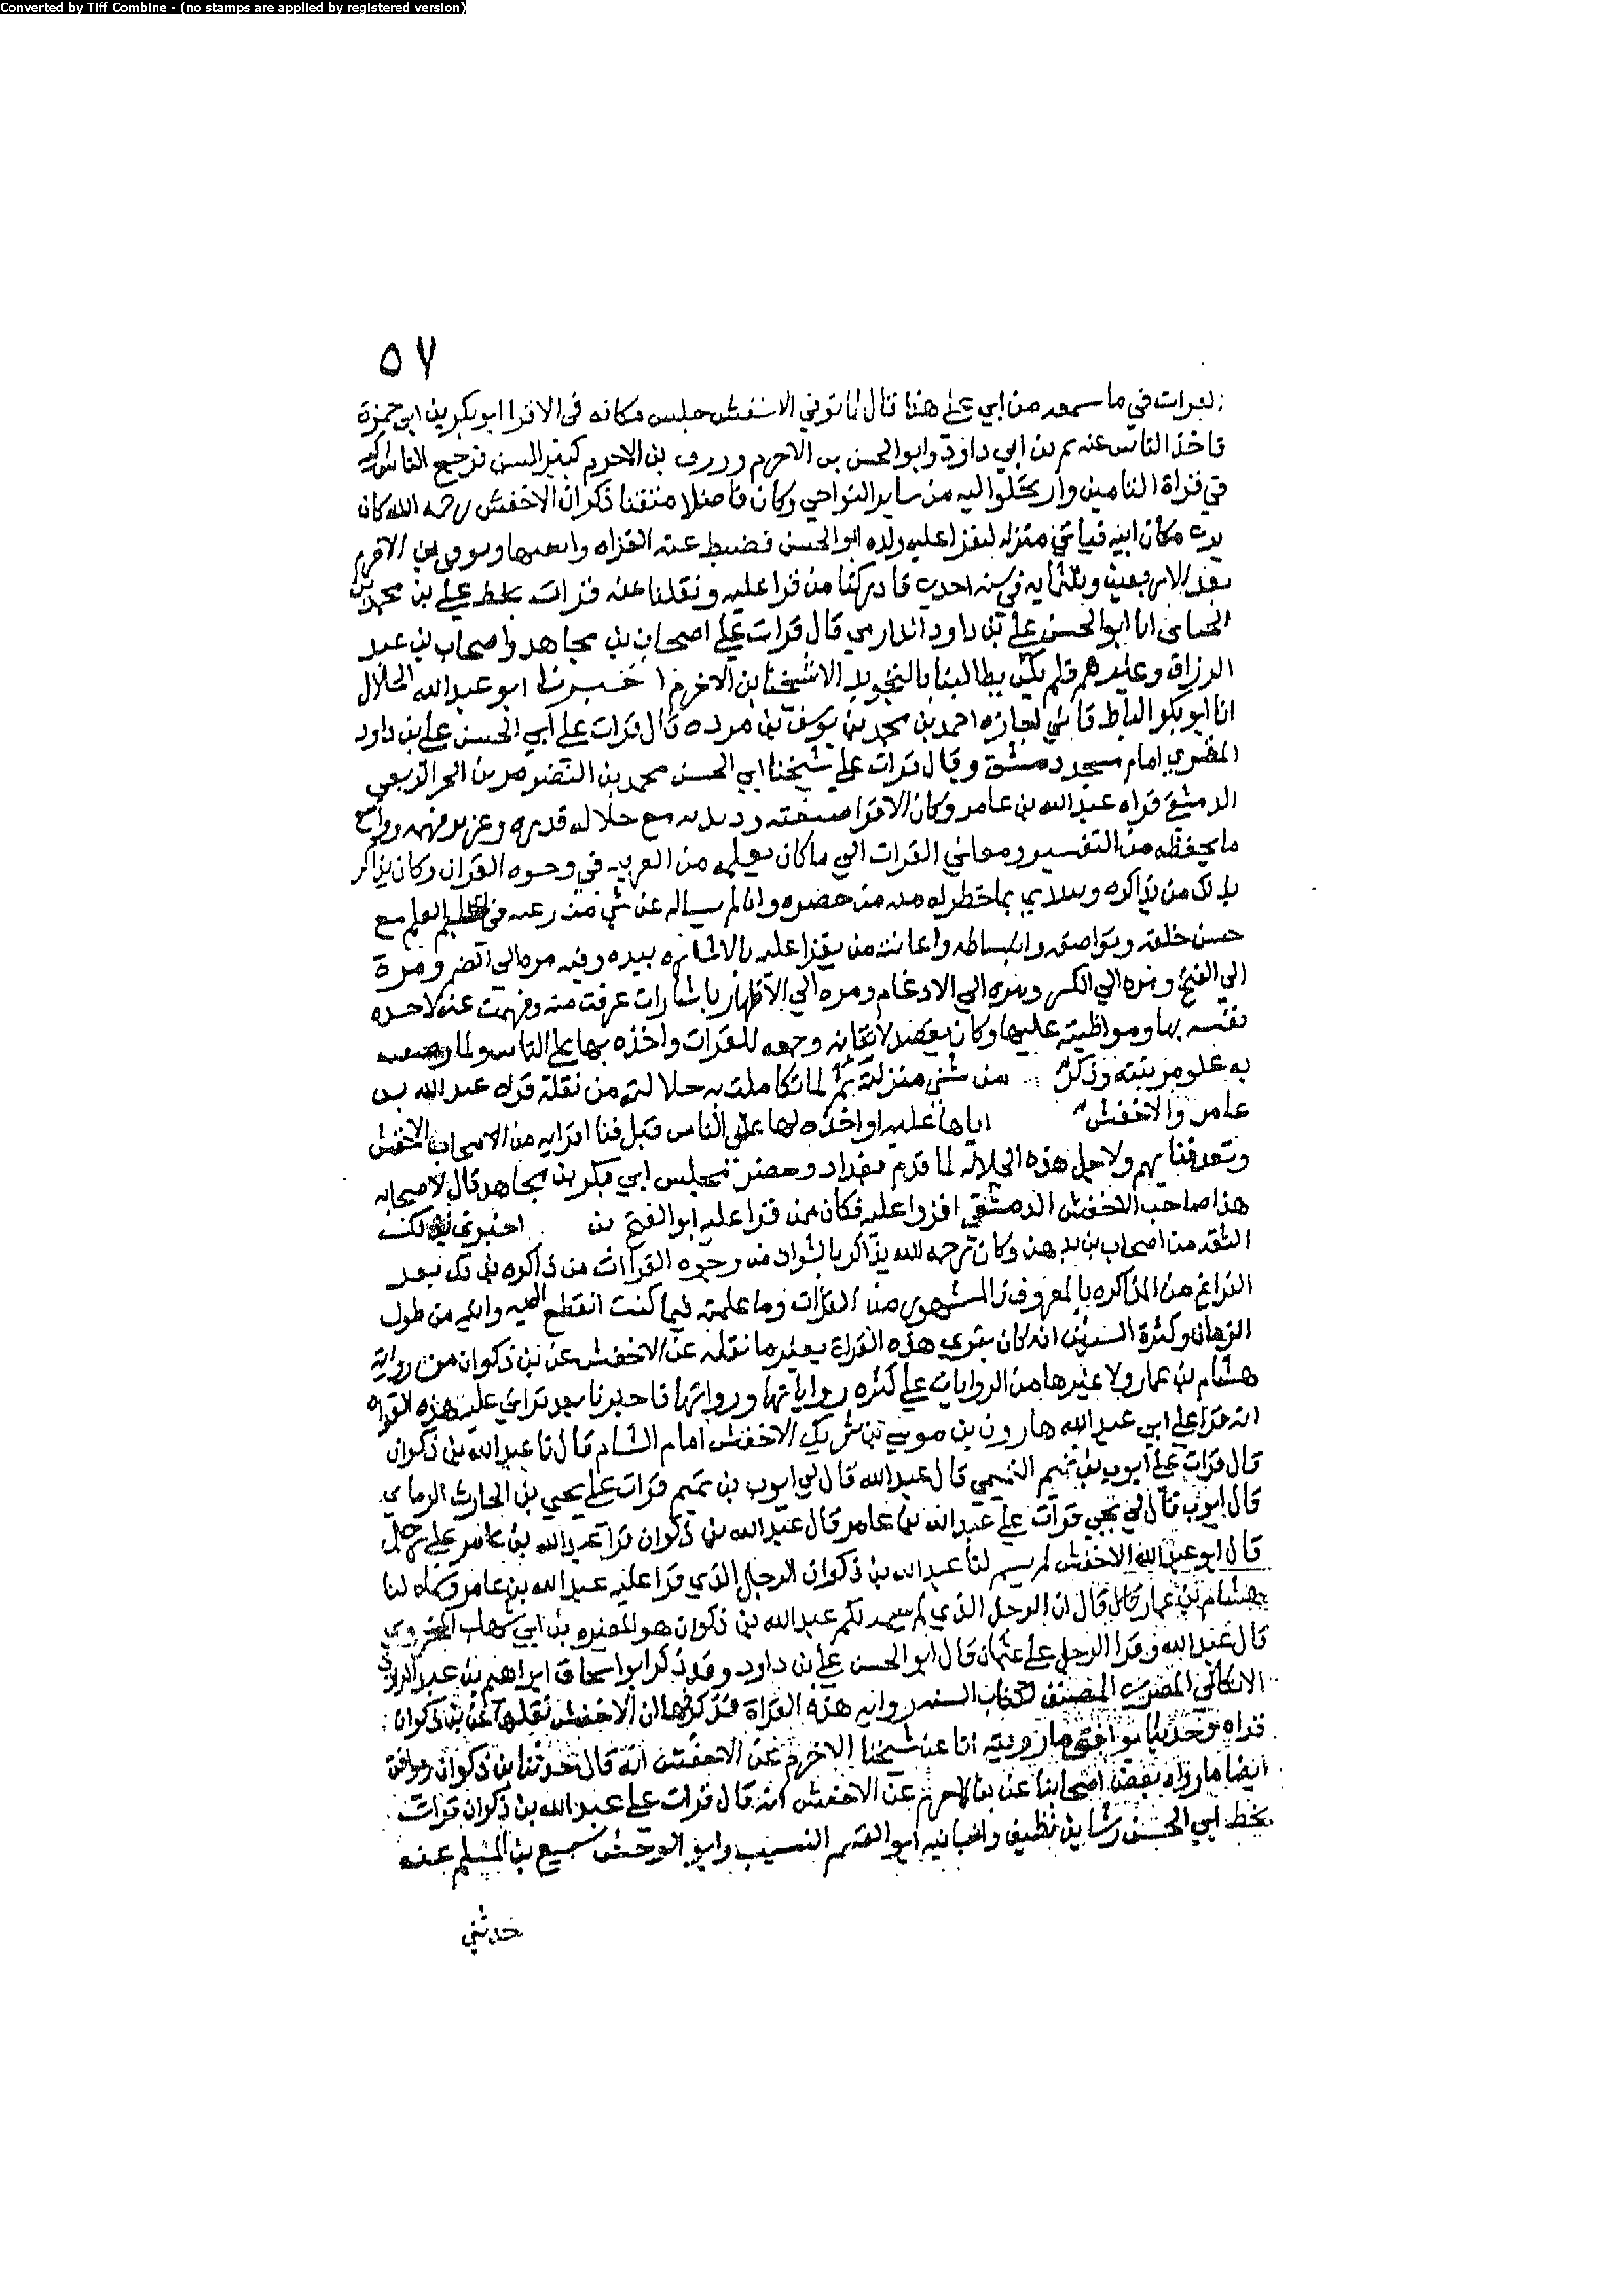 Converted by Tiff Combine - (no stamps are applied by registered version)
٥٧
في ما سمعه من ابي علي هذا قال لما توفي الاخفش جلس مكانه في الاقرا ابو بكر بن ابي حمزة
فاخذ الناس عنه بن ابي داود وابو الحسن بن الاخرم بن الاخرم السن فرجع الناس اليه
في قراة الشاميين اليه من ساير النواحي وكان فاضلا متقنا ذكر ان الاخفش رحمه الله كان
منزله ليقرا عليه ولده ابو الحسن فضبط عنه القراه بن الاخرم
بعد الاربعين وثلثمايه في سنه احدي فادركنا من قرا عليه ونقلنا عنه قرات بخط علي بن محمد بن
انا ابو الحسن علي بن داود الداري قال قرات علي اصحاب بن مجاهد واصحاب بن عبد
الرزاق وغيرهم فلم يكن يطالبنا بالتجويد الا شيخنا بن الاخرم اخبرنا ابو عبد الله الخلال
انا ابو بكر احمد بن محمد بن يوسف بن مرده قال قرات علي ابي الحسن علي بن داود
المقري امام مسجد دمشق وقال قرات علي شيخنا ابي الحسن محمد بن النضر بن مر بن الحر الربعي
الدمشقي قراه عبد الله بن عامر وكان الاقرا صنعته مع جلاله قدره
ما يحفظه من التفسير ومعاني القرات الي ما كان يعلمه من العربيه في وجوه القران وكان يذاكر
بذلك من يذاكره بما خطر له من حضره وان لم يساله عن شي منه رغبه في العلم مع
حسن خلقه وتواضعه وانبساطه واعانته من يقرا عليه بالاشاره بيده وفيه مره الي الضم ومرة
الي الفتح ومره الي الكسر ومره الي الادغام ومره الي الاظهار باشارات عرفت منه وفهمت عنه
نفسه بها ومواظبته عليها وكان يقصد لاتقانه وجمعه للقرات واخذه بها علي الناس
به علو مرتبته وذكر من سني منزلته لما تكاملت به جلالته من نقلة قراه عبد الله بن
عامر والاخفش اياها عليه او اخذه لها علي الناس قبل من الاصحاب الاخفش
ولاجل هذه الجلاله لما قدم بغداد وحضر مجلس ابي بكر بن مجاهد قال لاصحابه
هذا صاحب الاخفش الدمشقي اقروا عليه فكان ممن قرا عليه ابو الفتح بن اخبرني بذلك
الثقه من اصحاب بن وكان رحمه الله يذاكر بالشواذ من وجوه القراات من ذاكره بذلك بعد
الفراغ من المذاكره بالمعروف المشهور من القراات وما علمته فيما كنت انقطع اليه من طول
الزمان وكثرة السنين انه كان يقري هذه القراة بغير ما نقله عن الاخفش عن بن ذكوان من رواية
هشام بن عمار ولا غيرها من الروايات علي كثره رواياتها ورواتها فاخبرنا بعد قراتي عليه هذه القراه
انه قرا علي ابي عبد الله هارون بن موسي بن شريك الاخفش امام الشام قال انا عبد الله بن ذكوان
قال قرات علي ايوب بن تميم التميمي قال عبد الله قال لي ايوب بن تميم قرات علي يحيي بن الحارث الذماري
قال ايوب قال لي يحيي قرات علي عبد الله بن عامر قال عبد الله بن ذكوان قرا عبد الله بن عامر علي رجل
قال ابو عبد الله الاخفش لم يسم لنا عبد الله بن ذكوان الرجل الذي قرا عليه عبد الله بن عامر وسماه لنا
هشام بن عمار قال ان الرجل الذي لم يسمه لكم عبد الله بن ذكوان هو المغيره بن ابي شهاب المخزومي
قال عبد الله وقرا الرجل علي عثمان قال ابو الحسن علي بن داود وقد ذكر ابو اسحاق ابراهيم بن عبد الرزاق
الانطاكي المقري المصنف روايه هذه القراة فذكر فيها ان الاخفش نقلها عن بن ذكوان
انا عن شيخنا الاخرم عن الاخفش انه قال حدثنا بن ذكوان
ايضا ما رواه بعض اصحابنا عن بن الاخرم عن الاخفش انه قال قرات علي عبد الله بن ذكوان قرات
بخط ابي الحسن رشا بن نظيف وانبانيه ابو القسم النسيب وابو الوحش سبيع بن المسلم عنه
حدثني